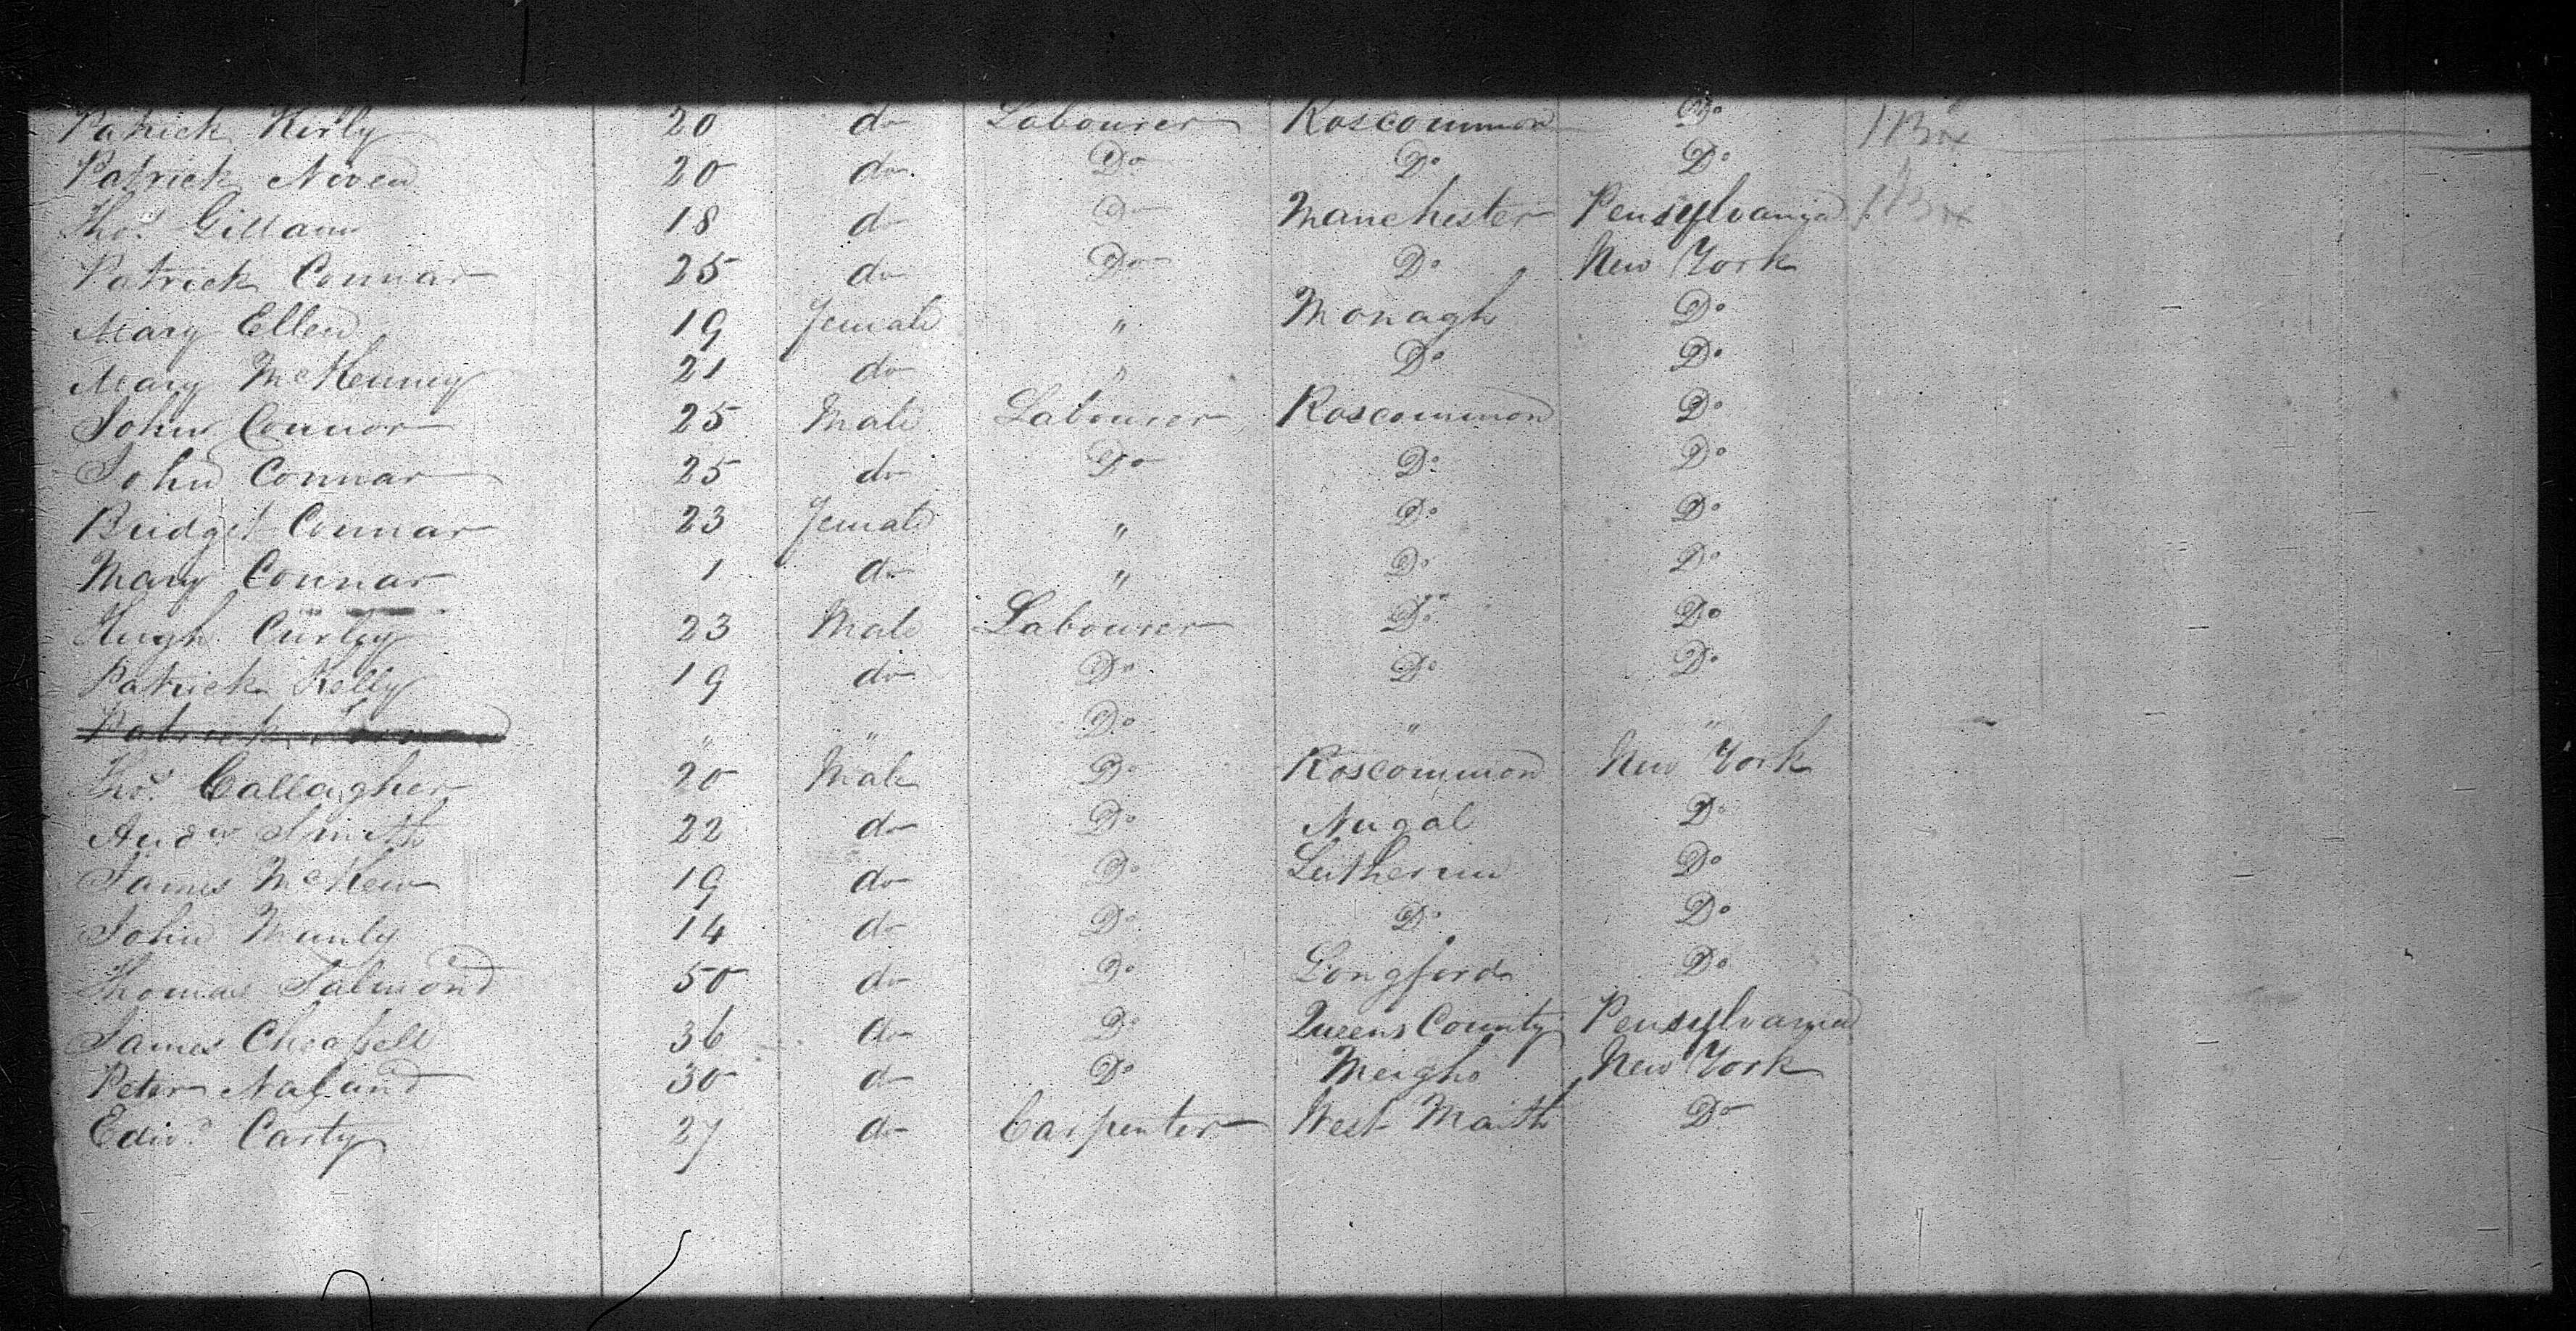 Patrick Kirly 20 do Labourer Roscommon Do 1 Box
Patrick Niven 20 do Do Do Do
Thos. Gillann 18 do Do Manchester Pensylvania 1 Box
Patrick Connar 25 do Do Do New York
Mary Ellen 19 female " Monagh Do
Mary McKenney 21 do " Do Do
John Connor 25 Male Labourer Roscommon Do
John Connar 25 do Do Do Do
Bridget Connar 23 female " Do Do
Mary Connar 1 do " Do Do
Hugh Curley 23 Male Labourer Do Do
Patrick Kelly 19 do Do Do Do
Patrick " " Do " "
Thos. Callagher 20 Male Do Roscommon New York
Andw Smith 22 do Do Nugal Do
James McKew 19 do Do Leitherim Do
John Munly 14 do Do Do Do
Thomas Salmond 50 do Do Longford Do
James 36 do Do Queens County Pensylvania
Peter Naland 30 do Do Meigho New York
Edwd. Carty 27 do Carpenter West Maith Do